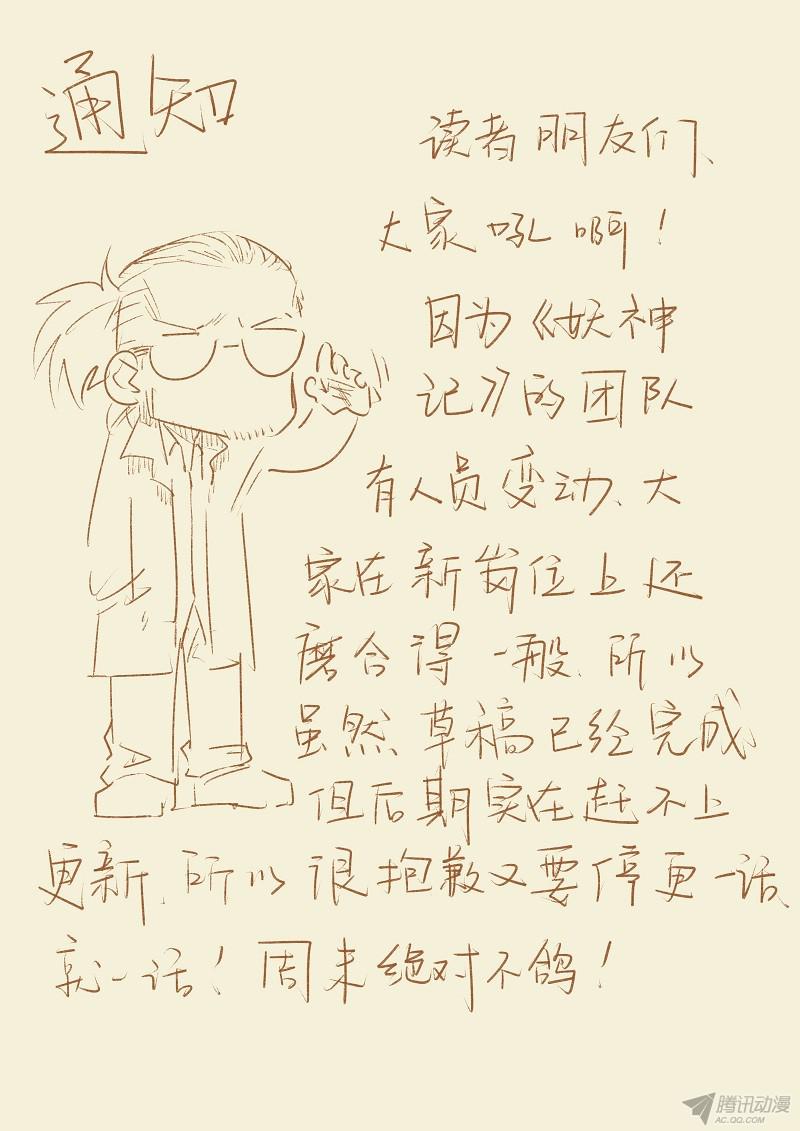 通知
读者朋友们、
大家吼啊！
因为《妖神
记》的团队
有人员变动、大
家在新岗位上还
磨合得一般、所以
虽然草稿已经完成
但后期实在赶不上
更新、所以很抱歉又要停更一话
就一话！周末绝对不鸽！
腾讯动漫
AC.QQ.COM